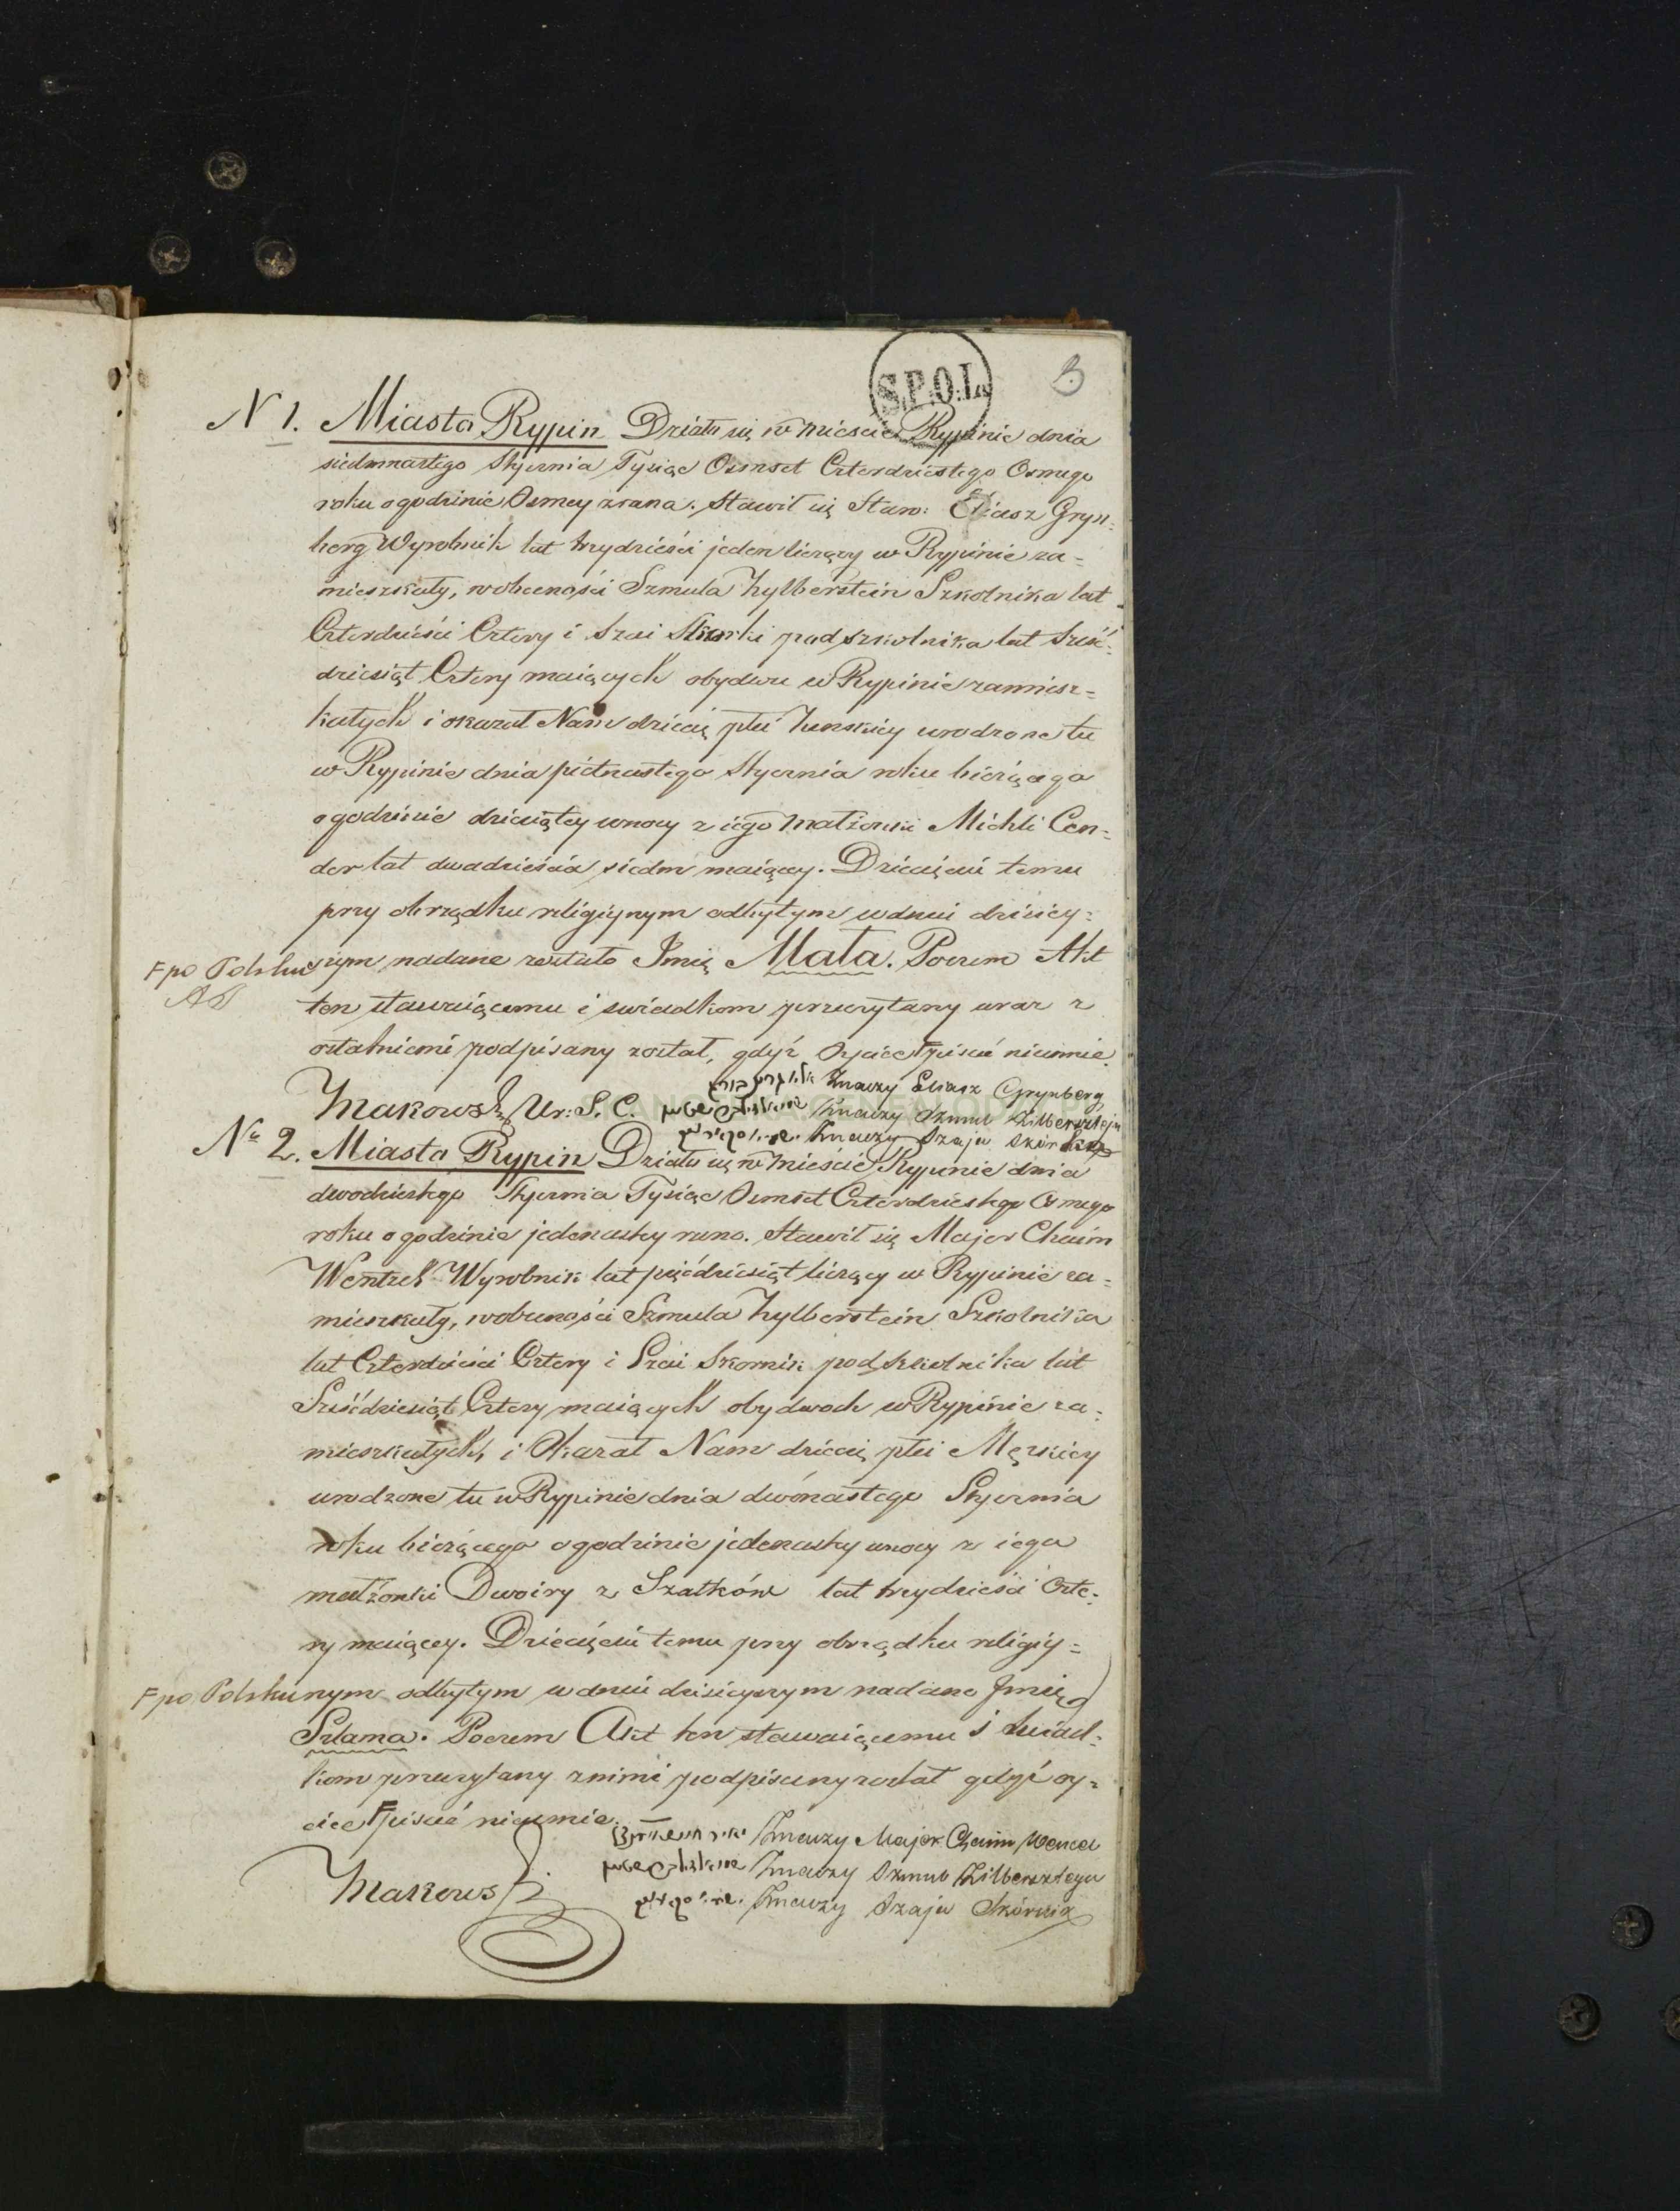 S.P.O.L. 3
N 1. Miasta Rypin Działo się w Mieście Rypinie dnia
siedmnastego Stycznia Tysiąc Osmset Czterdziestego Osmego
roku o godzinie Osmey zrana. Stawił się Staro: Eliasz Gryn=
berg Wyrobnik lat trzydzieści jeden liczący w Rypinie za=
mieszkały, w obecności Szmula Zylberstein Szkolnika lat
Czterdzieści Cztery i Szai podszkolnika lat Sześć=
dziesiąt Cztery maiących obydwu w Rypinie zamiesz=
kałych i okazał Nam dziecię płci żenskiey urodzone tu
w Rypinie dnia piętnastego Stycznia roku bieżącego
o godzinie dziesiątey wnocy z iego Małżonki Michli Cen=
der lat dwadzieścia siedm maiącey. Dziecięciu temu
przy obrządku religiynym odbytym w dniu dzisiey=
F po Polsku szym nadane zostało Imię Mała. Poczem Akt
ten stawaiącemu i swiadkom przeczytany wraz z
ostatniemi podpisany został, gdyż Oyciec F pisać nieumie.
Makowski Ur: S. C. znaczy Eliasz Grynberg
znaczy Szmul Zilbersztejn
znaczy Szaja Skórnik
No 2. Miasta Rypin Działo się w Mieście Rypinie dnia
dwodziestego Stycznia Tysiąc Osmset Czterdziestego Osmego
roku o godzinie jedenastey rano. Stawił się Majer Chaim
Wentzel Wyrobnik lat pięćdziesiąt liczący w Rypinie za=
mieszkały, w obecności Szmula Zylberstein Szkolnika
lat Czterdzieści Cztery i Szai Skornik podszkolnika lat
Sześćdziesiąt Cztery maiących obydwoch w Rypinie za=
mieszkałych, i Okazał Nam dziecię płci Męzkiey
urodzone tu w Rypinie dnia dwónastego Stycznia
roku bieżącego o godzinie jedenastey wnocy z iego
małżonki Dwoiry z Szatków lat trzydzieści Czte=
ry maiącey. Dziecięciu temu przy obrządku religiy=
F po Polsku nym odbytym w dniu dzisieyszym nadano Imię
Szlama. Poczem Akt ten stawaiącemu i Swiad=
kom przeczytany z nimi podpisany został gdyż oy=
ciec F pisać nieumie.
znaczy Majer Chaim Wencel
znaczy Szmul Zilbersztejn
Makowski znaczy Szaja Skórnik